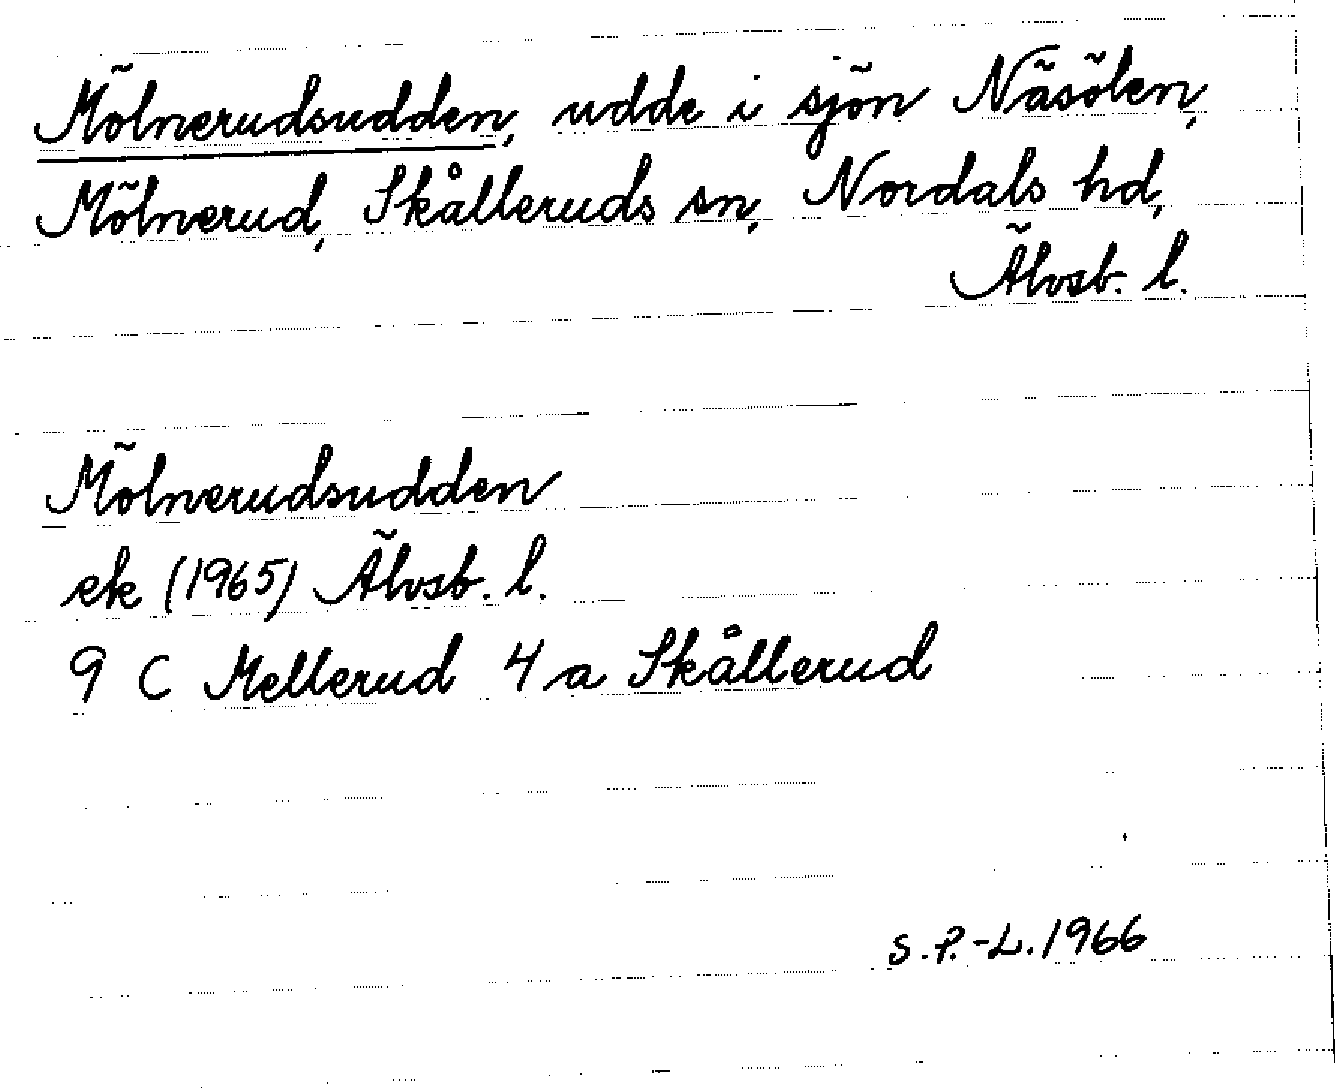 Mölnerudsudden, udde i sjön Näsölen,
Mölnerud, Skålleruds sn, Nordals hd,
Älvsb. l.
Mölnerudsudden
ek (1965) Älvsb. l.
9 C Mellerud 4 a Skållerud
S.P.-L. 1966